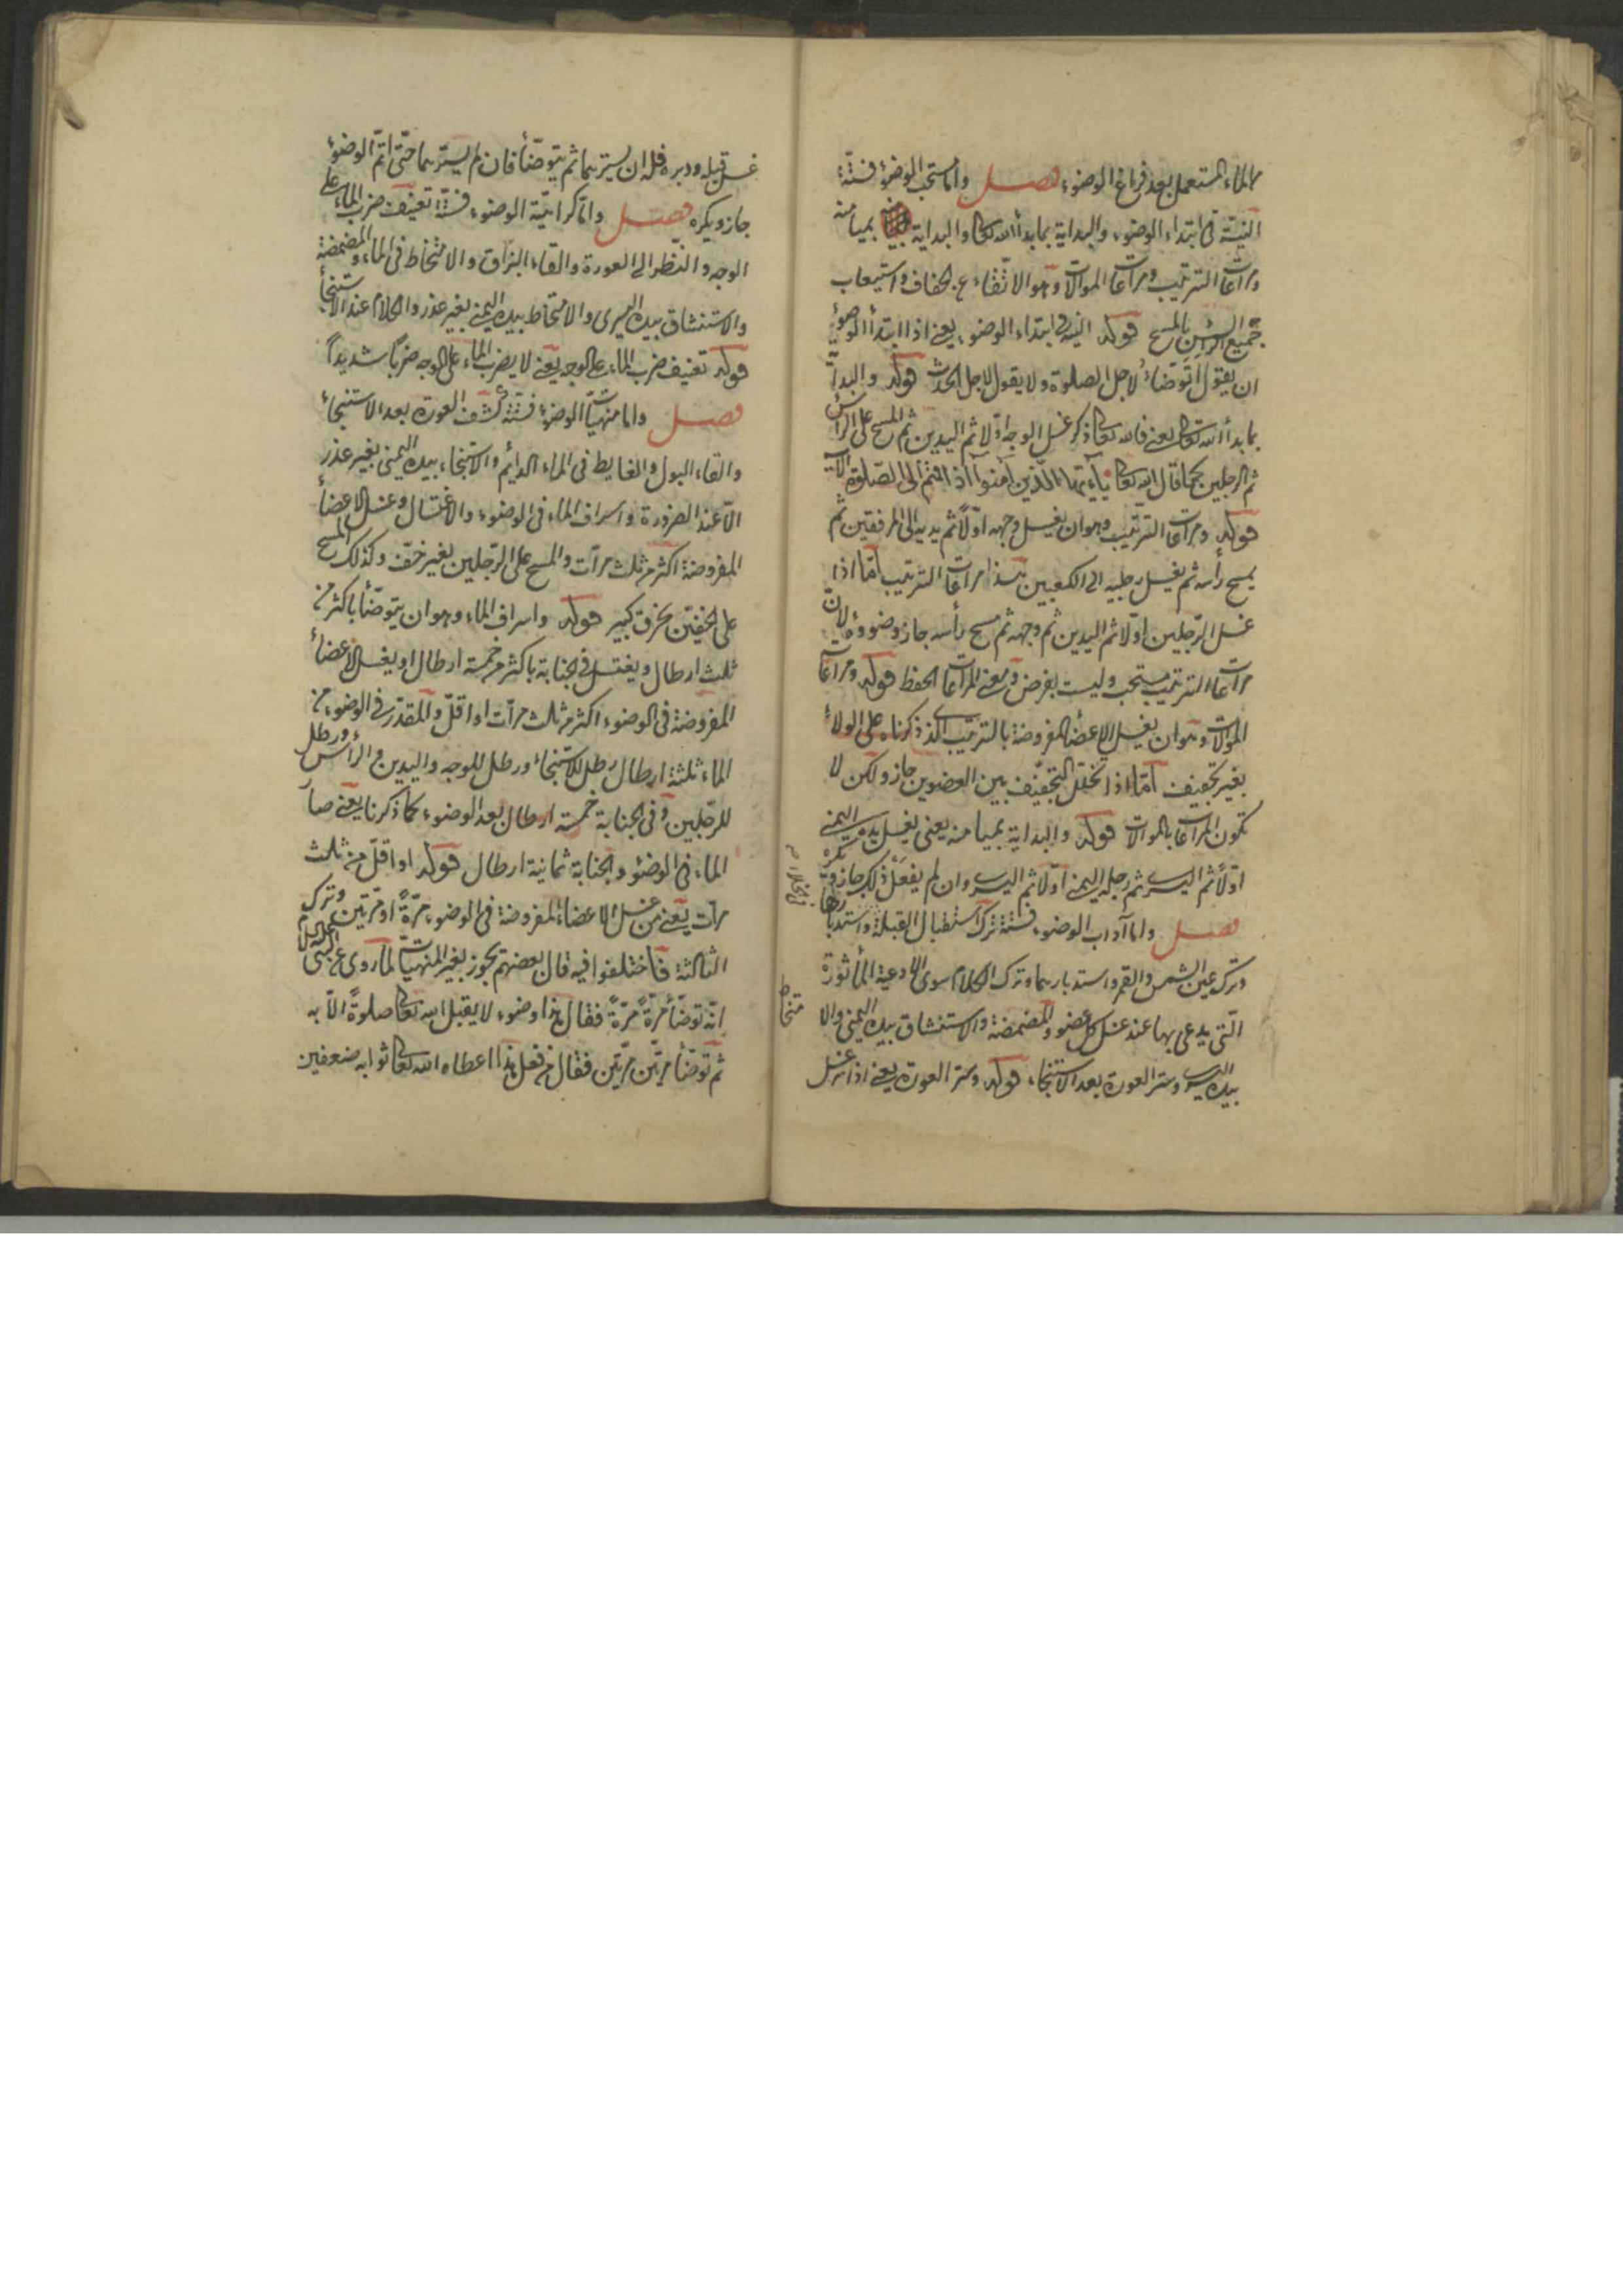 الماء المستعمل بعد فراغ الوضوء فصل واما مستحب الوضوء فستّة
النيّة فى ابتداء الوضوء والبداية بما بدأ الله تعالى والبداية بميامنه
ومراعات الترتيب ومراعات الموالات وهو الاتّقاء عن الجفاف واستيعاب
جميع الرأس بالمسح قوله النية فى ابتداء الوضوء يعنى اذا ابتدأ الوضوء
ان يقول اتوضّاء لاجل الصلوة ولا يقول لاجل الحدث قوله والبدأة
بما بدأ الله تعالى يعنى فالله تعالى ذكر غسل الوجه اوّلا ثم اليدين ثم المسح على الرأس
ثم الرجلين كما قال الله تعالى يآيّها الّذين آمنوا اذا قمتم الى الصّلوة الآية
قوله ومراعات الترتيب وهو ان يغسل وجهه اوّلاً ثم يديه الى المرفقين ثم
يمسح رأسه ثم يغسل رجليه الى الكعبين هذا مراعات الترتيب امّا اذا
غسل الرّجلين اوّلا ثم اليدين ثم وجهه ثم مسح رأسه جاز وضوؤه لانّ
مراعات الترتيب مستحب وليست بفرض ومعنى المراعات الحفظ قوله ومراعات
الموالات وهو ان يغسل الاعضاء المفروضة بالترتيب الذى ذكرناه على الولاء
بغير تجفيف امّا اذا تخلّل التجفيف بين العضوين جاز ولكن لا
تكون المراعات بالموالات قوله والبداية بميامنه يعنى يغسل يده اليمنى
اوّلاً ثم اليسرى ثم رجله اليمنى اوّلا ثم اليسرى وان لم يفعل ذلك جاز ويكره
فصل واما آداب الوضوء فستة ترك استقبال القبلة واستدبارها
وترك عين الشمس والقمر واستدبارهما وترك الكلام سوى الادعية المأثورة
الّتى يدعى بها عند غسل كل عضو والمضمضة والاستنشاق بيده اليمنى والا
متخاط
بيده اليسرى وستر العورة بعد الاستنجاء قوله وستر العورة يعنى اذا غسل
غسل قبله ودبره فله ان يسترهما ثم يتوضّأ فان لم يسترهما حتّى اتمّ الوضوء
جاز ويكره فصل وامّا كراهيّة الوضوء فستّة تعنيف ضرب الماء على
الوجه والنّظر الى العورة والقاء البزاق والامتخاط فى الماء والمضمضة
والاستنشاق بيده اليسرى والامتخاط بيده اليمنى بغير عذر والكلام عند الاستنجأ
قوله تعنيف ضرب الماء على الوجه يعنى لا يضرب الماء على الوجه ضرباً شديداً
فصل واما منهيّات الوضوء فستّة كشف العورة بعد الاستنجاء
والقاء البول والغايط فى الماء الدائم والاستنجاء بيده اليمنى بغير عذر
الّا عند الضرورة واسراف الماء فى الوضوء والاغتسال وغسل الاعضأ
المفروضة اكثر من ثلث مرآت والمسح على الرّجلين بغير خفّ وكذلك المسح
على الخفين بخرق كبير قوله واسراف الماء وهو ان يتوضّأ باكثر من
ثلث ارطال ويغتسل فى الجنابة باكثر من خمسة ارطال او يغسل الاعضاء
المفروضة فى الوضوء اكثر من ثلث مرآت او اقلّ والمقدر فى الوضوء من
الماء ثلثة ارطال رطل للاستنجاء ورطل للوجه واليدين والرأس ورطل
للرّجلين وفى الجنابة خمسة ارطال بعد الوضوء كما ذكرنا يعنى صار
الماء فى الوضؤ والجنابة ثمانية ارطال قوله او اقلّ من ثلث
مرآت يعنى من غسل الاعضاء المفروضة فى الوضوء مرّةً او مرّتين وترك
الثالثة فاختلفوا فيه قال بعضهم يجوز بغير المنهيّات لما روى عن النبى عليه السلام
انّه توضّأ مرّةً مرّةً فقال هذا وضوء لا يقبل الله تعالى صلوةً الّا به
ثم توضّأ مرّتين مرّتين فقال من فعل هذا اعطاه الله تعالى ثوابه ضعفين